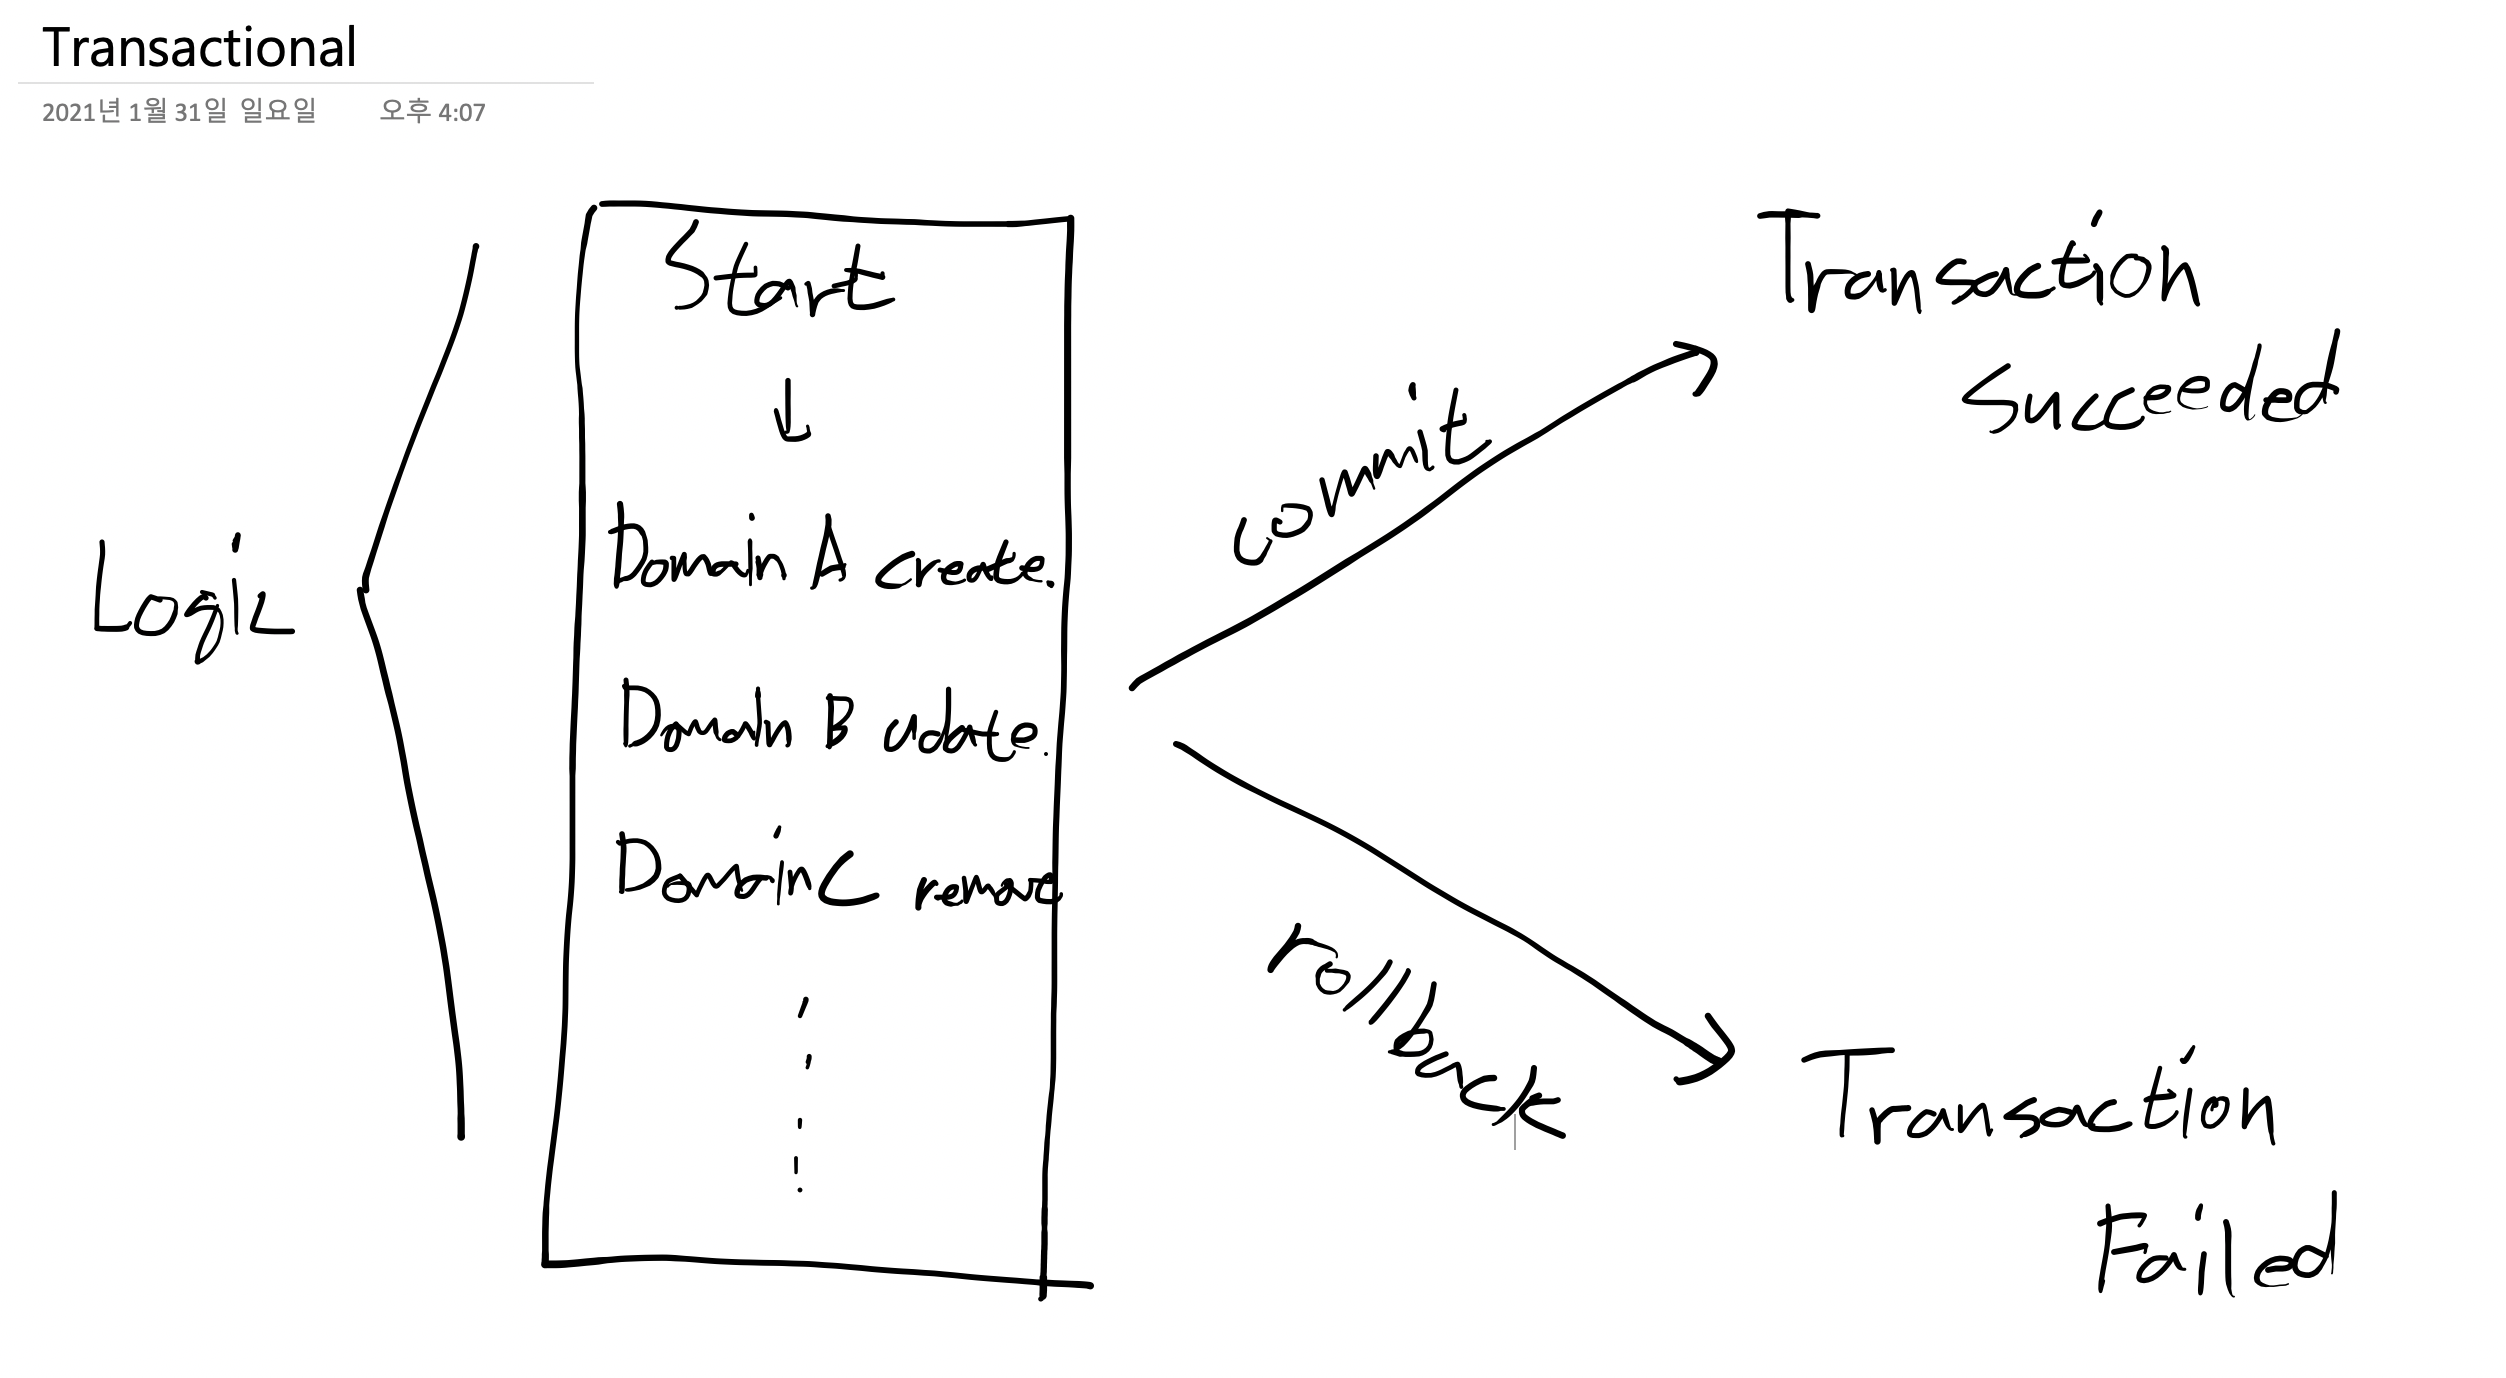 Transactional
2021년 1월 31일 일요일 오후 4:07
Logic
Start
Domain A Create.
Domain B update.
Domain C remove
commit
rollback
Transaction
Succeeded
Transaction
Failed